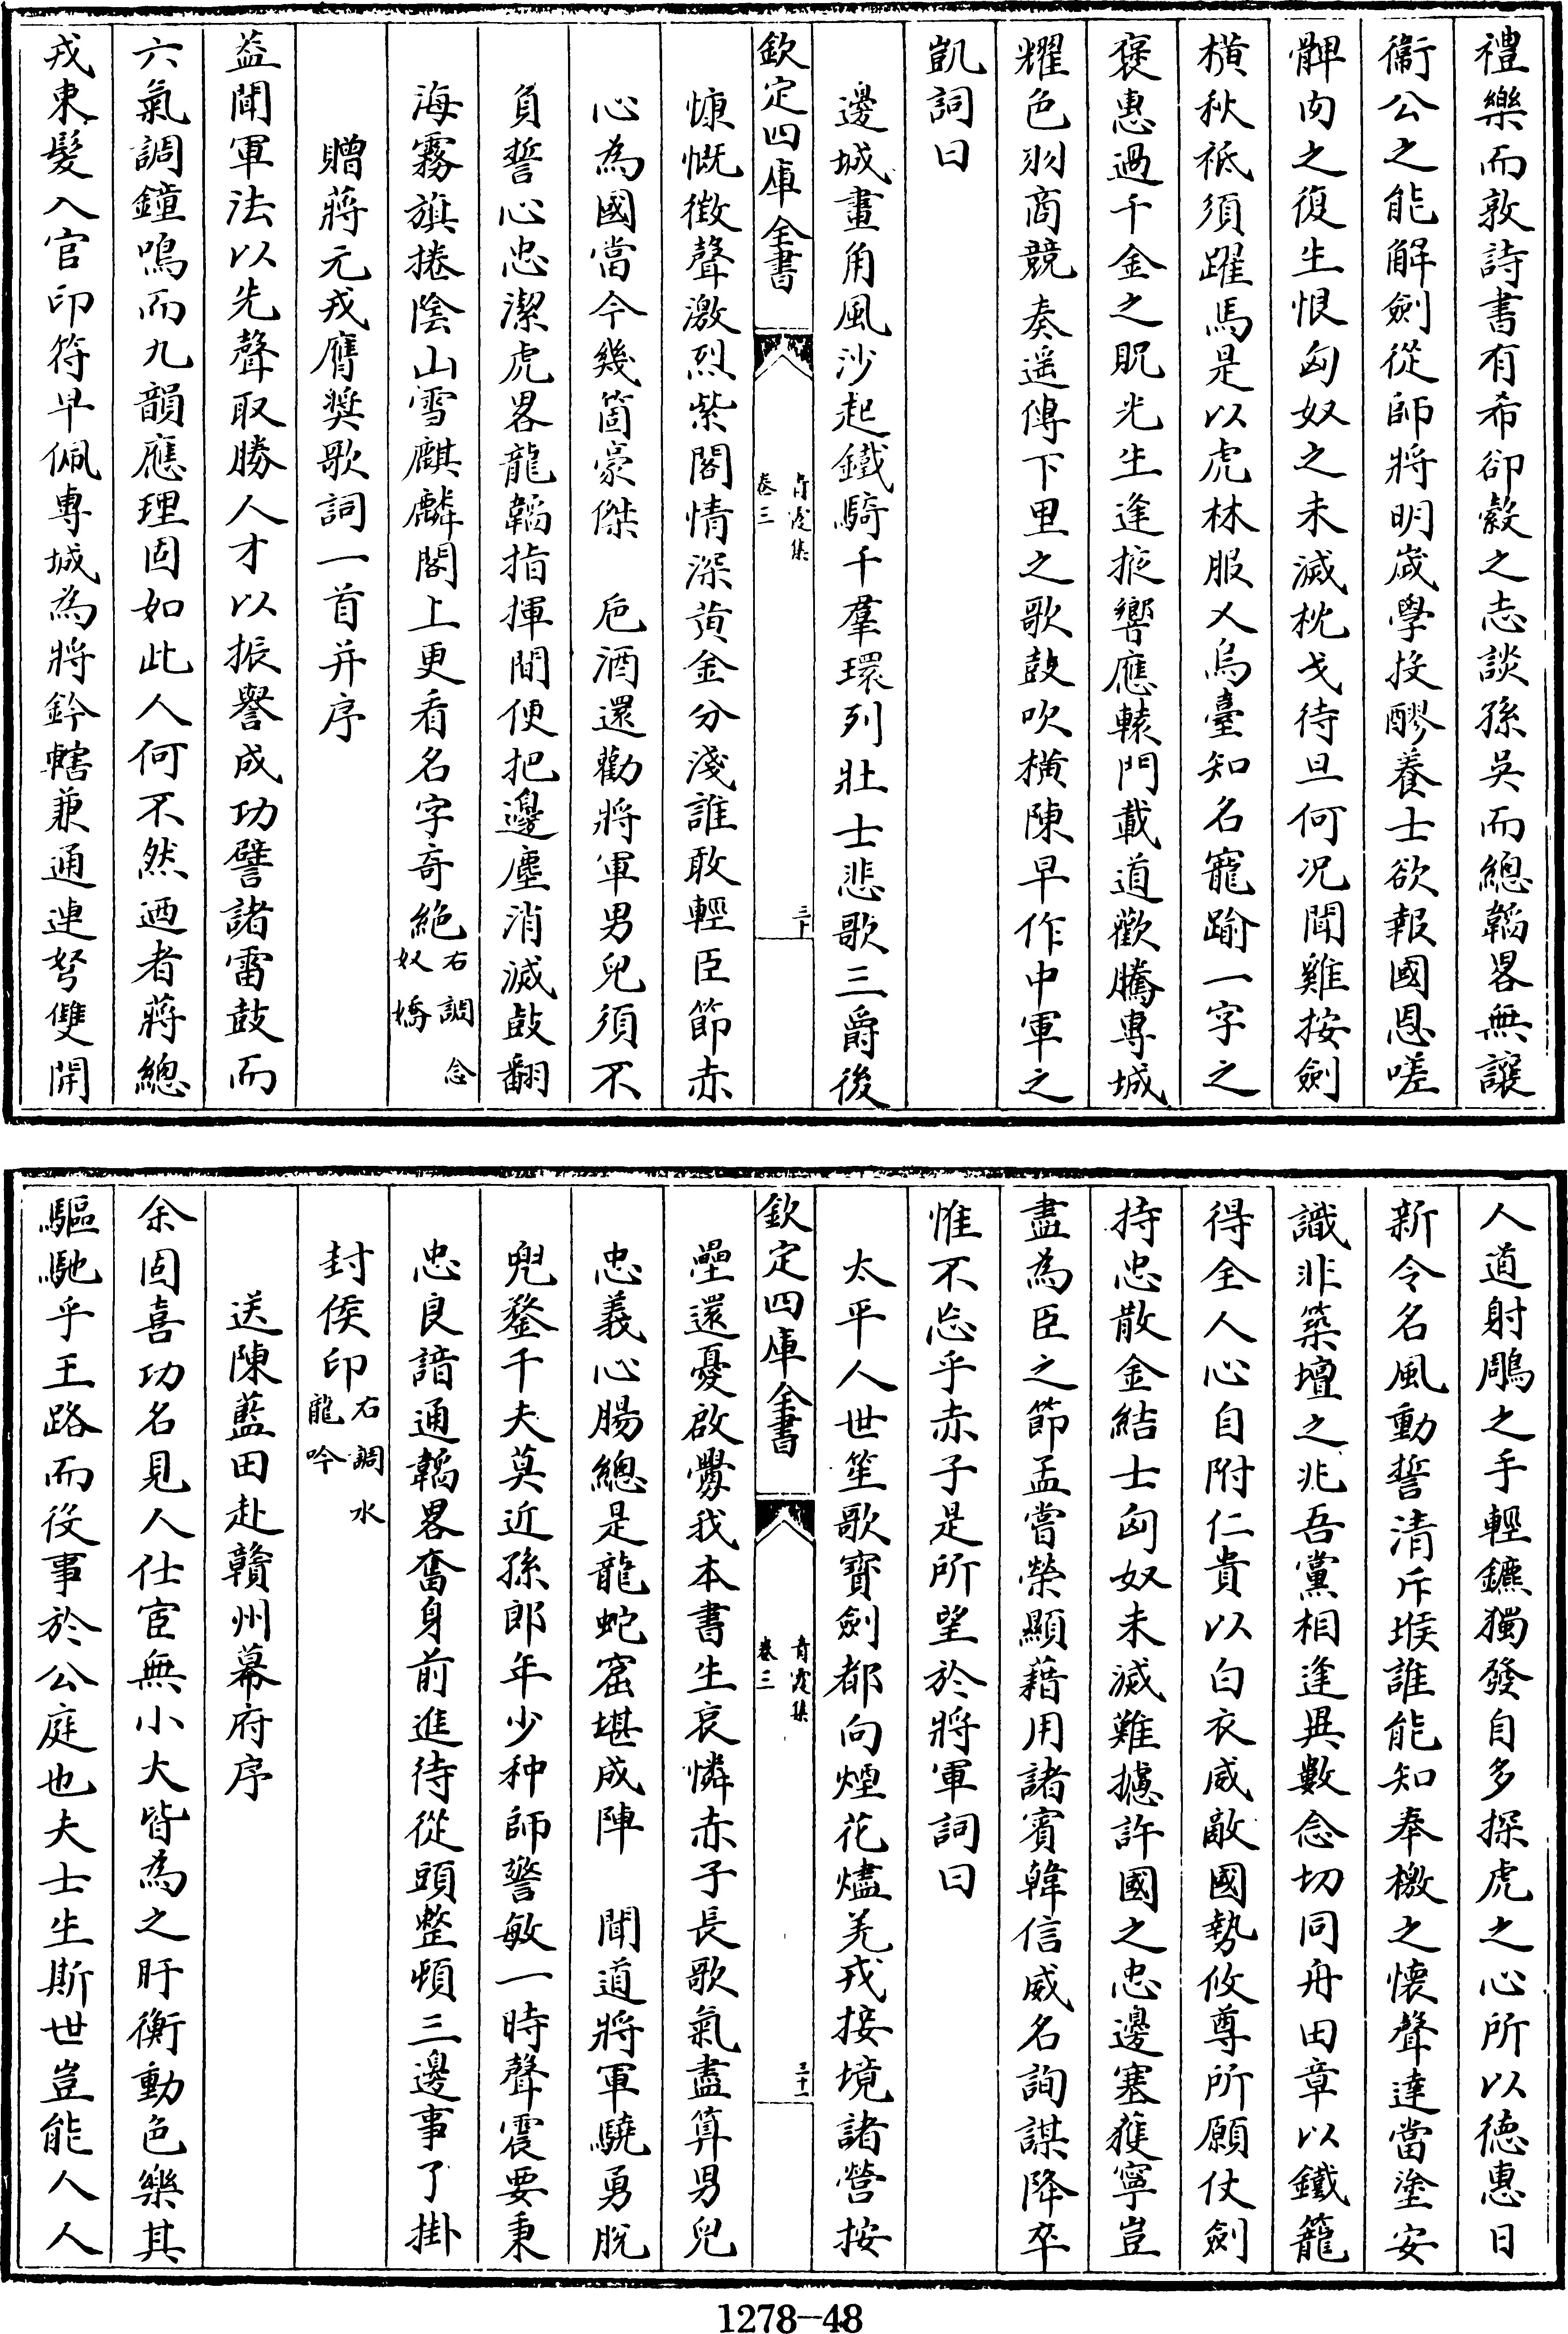 禮樂而敦詩書有希卻縠之志談孫吳而總韜畧無讓
衞公之能解劍從師將明嵗學投醪養士欲報國恩嗟
髀肉之復生恨匈奴之未滅枕戈待旦何况聞雞按劍
横秋祗須躍馬是以虎林服乂烏臺知名寵踰一字之
褒惠過千金之貺光生逢掖響應轅門載道歡騰專城
耀色羽商競奏遥傳下里之歌鼓吹横陳早作中軍之
凱詞曰
邊城畫角風沙起鐵騎千羣環列壯士悲歌三爵後
欽定四庫全書
青霞集
卷三
三十
慷慨徵聲激烈紫閣情深黄金分淺誰敢輕臣節赤
心為國當今幾箇豪傑　巵酒還勸將軍男兒須不
負誓心忠潔虎畧龍韜指揮間便把邊塵消滅鼓翻
海霧旗捲陰山雪麒麟閣上更看名字奇絶右調念奴嬌
贈蔣元戎膺奬歌詞一首并序
葢聞軍法以先聲取勝人才以振譽成功譬諸雷鼓而
六氣調鐘鳴而九韻應理固如此人何不然迺者蔣總
戎束髮入官印符早佩專城為將鈐轄兼通連弩雙開
人道射鵰之手輕鑣獨發自多探虎之心所以德惠日
新令名風動誓清斥堠誰能知奉檄之懐聲達當塗安
識非築壇之兆吾黨相逢異數念切同舟田章以鐵籠
得全人心自附仁貴以白衣威敵國勢攸尊所願仗劍
持忠散金結士匈奴未滅難攄許國之忠邊塞獲寧豈
盡為臣之節孟嘗榮顯藉用諸賓韓信威名詢謀降卒
惟不忘乎赤子是所望於將軍詞曰
太平人世笙歌寳劍都向煙花燼羌戎接境諸營按
欽定四庫全書
青霞集
卷三
三十一
壘還憂啟釁我本書生哀憐赤子長歌氣盡算男兒
忠義心腸總是龍蛇窟堪成陣　聞道將軍驍勇脱
兜鍪千夫莫近孫郎年少种師警敏一時聲震要秉
忠良諳通韜畧奮身前進待從頭整頓三邊事了掛
封侯印右調水龍吟
送陳藍田赴贛州幕府序
余固喜功名見人仕宦無小大皆為之盱衡動色樂其
驅馳乎王路而役事於公庭也夫士生斯世豈能人人
1278-48